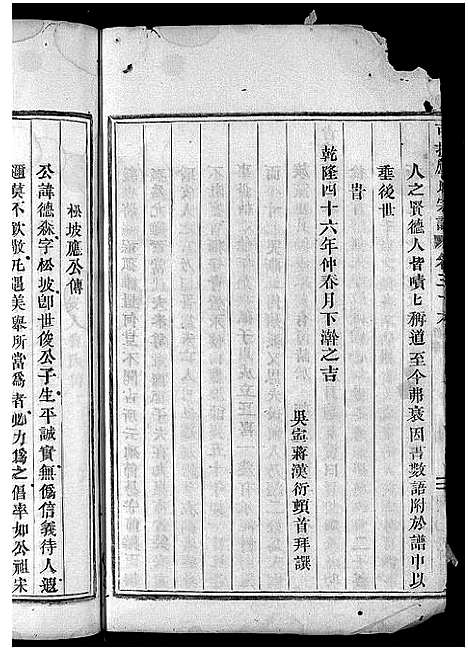 人之賢德人皆嘖〻稱道至今弗衰因書數語附於譜中以
垂後世
旹
乾隆四十六年仲春月下澣之吉
吳寧蔣漢衍頓首拜譔
松坡應公傳
公諱德森字松坡卽世俊公子生平誠實無僞信義待人遐
邇莫不欽敬凡遇美舉所當爲者必力爲之倡率如公祖宋